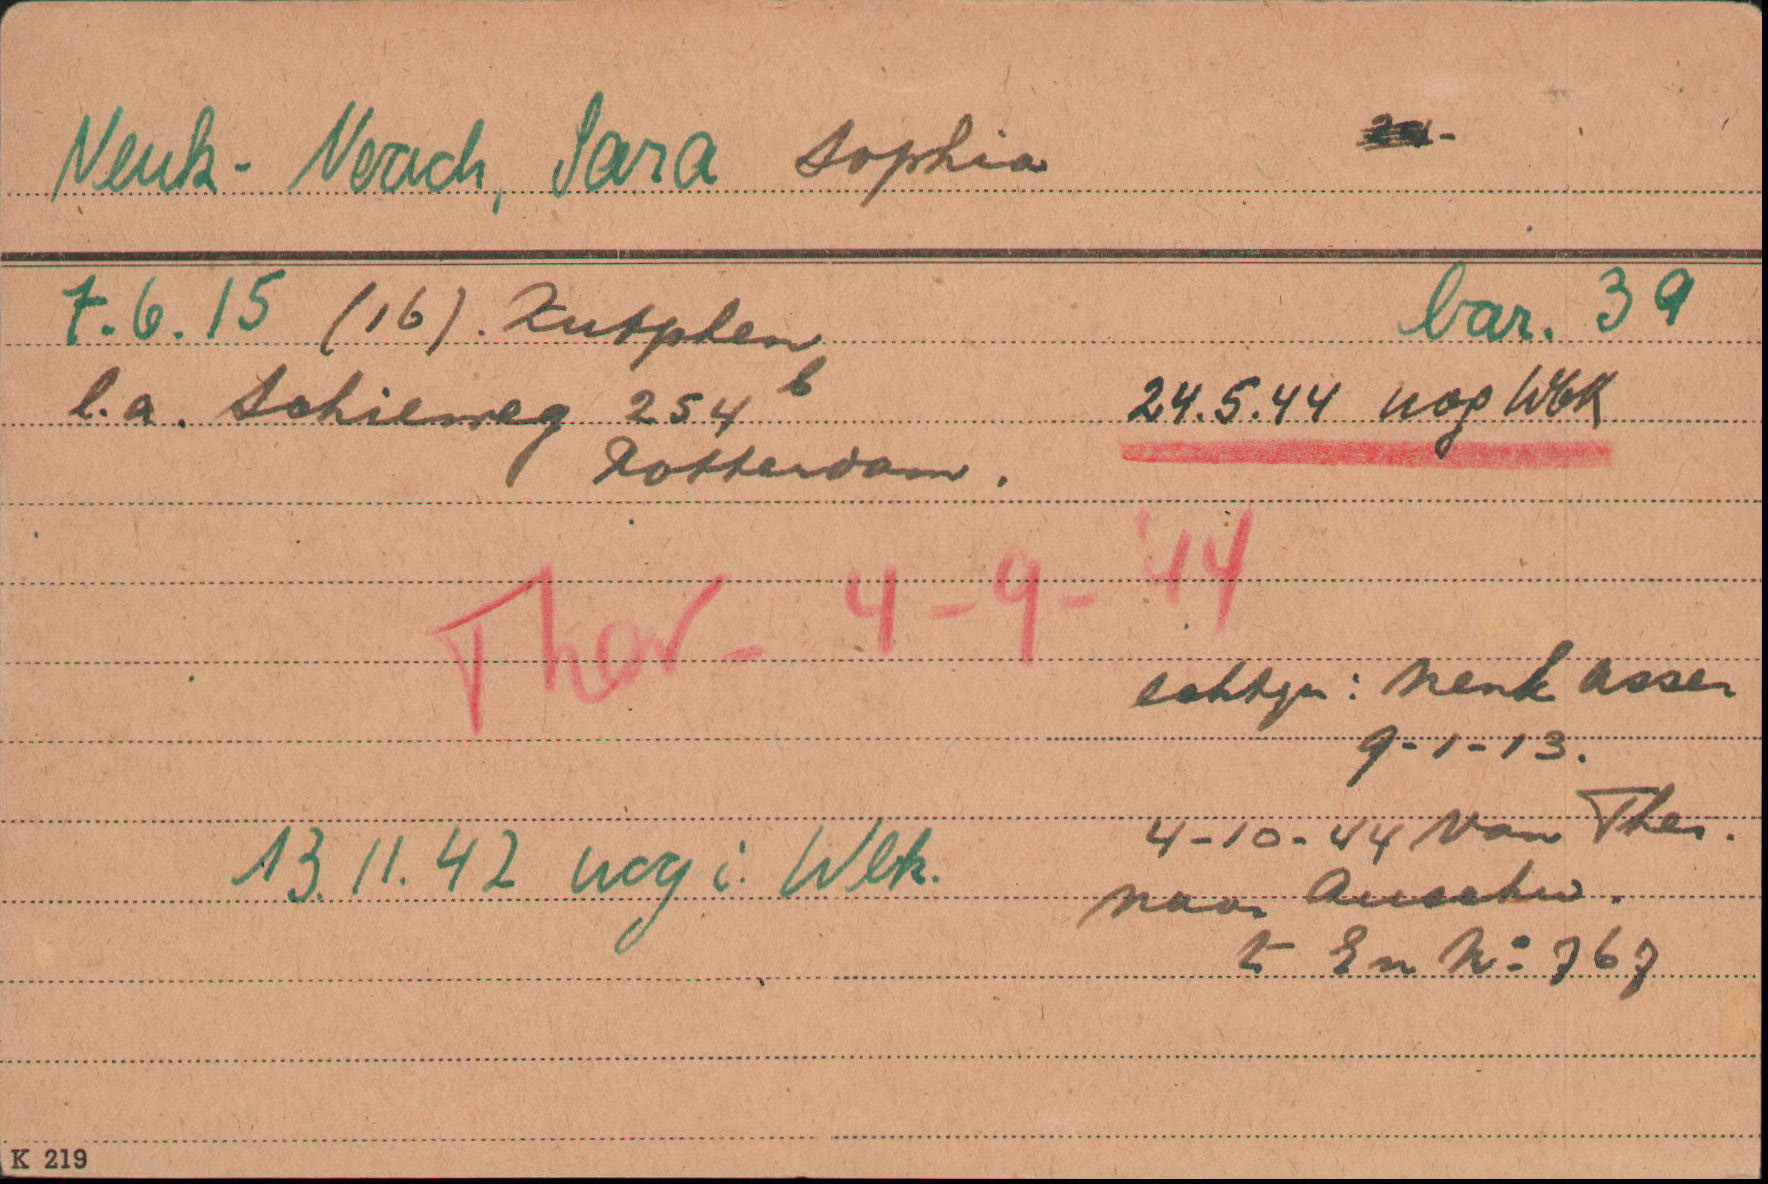 Menk - Noach, Sara Sophia
7.6.15 (16). Zutphen
bar. 39
l.a. Schieweg 254 b
Rotterdam.
24.5.44 nog Wbk
Ther - 4-9-'44
echtgn: Menk Asser
9-1-13.
13.11.42 nog i. Wbk.
4-10-44 van Ther.
naar Auschw.
t En No 767
K 219